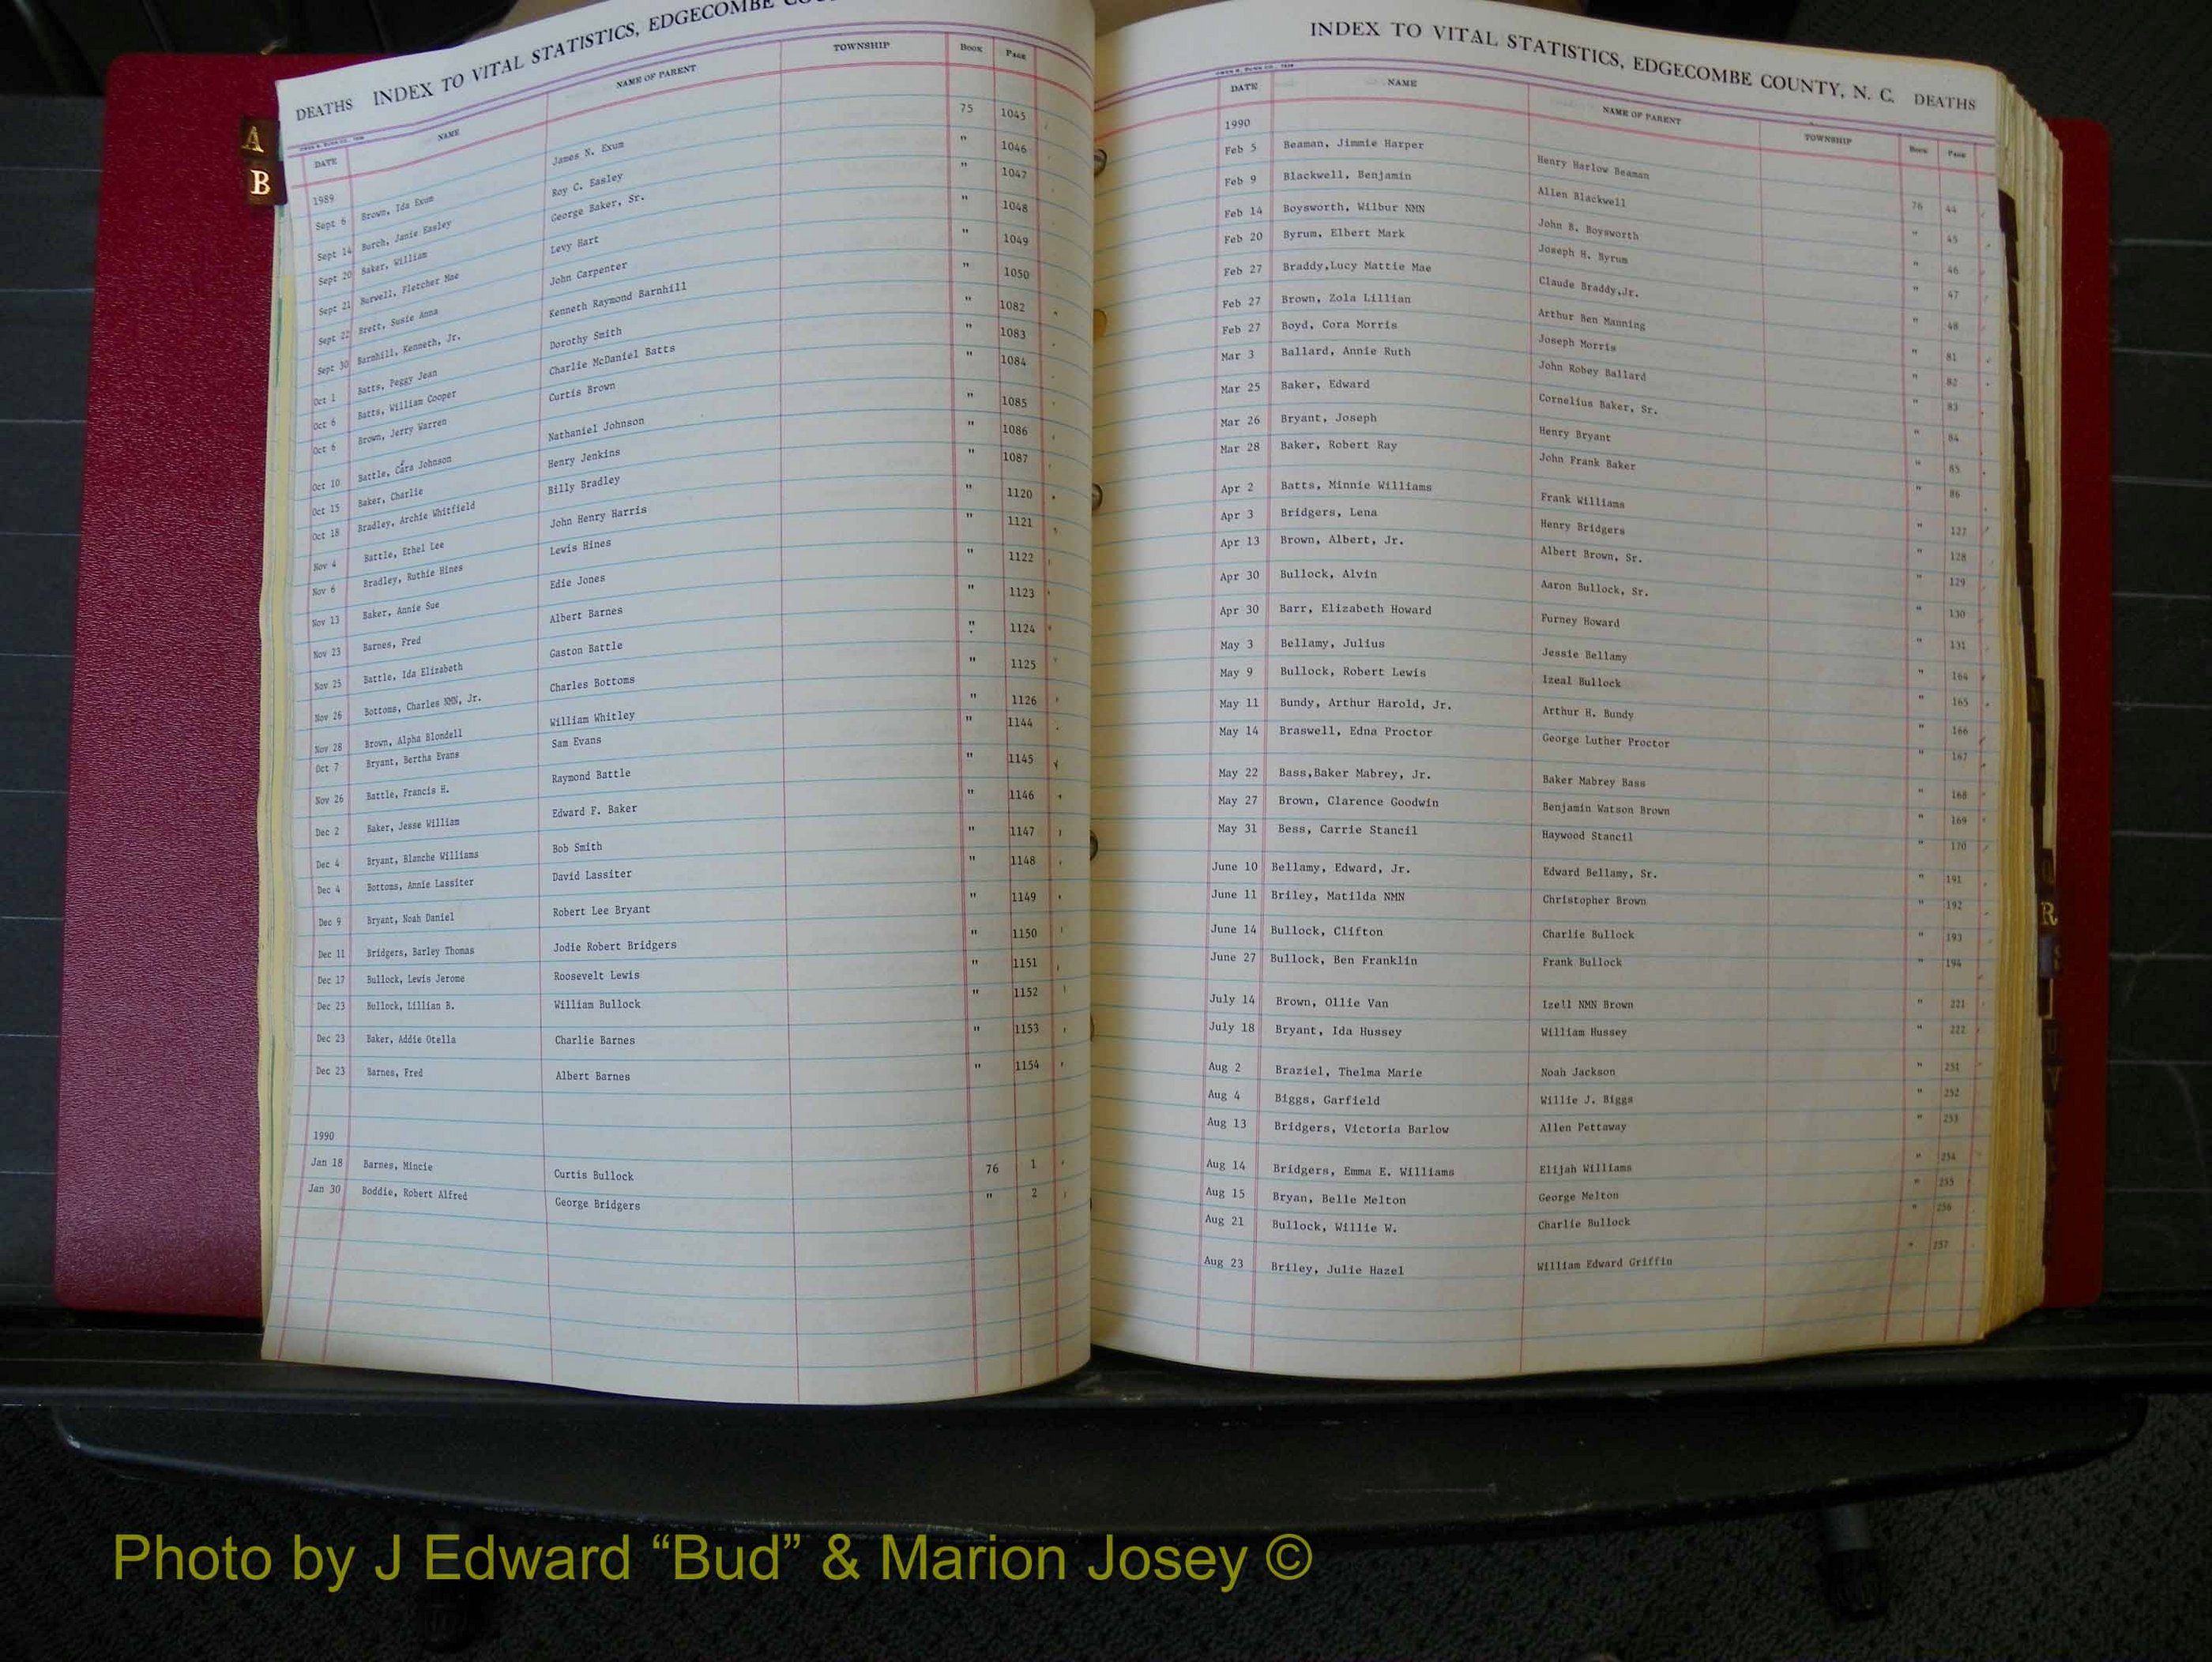 A
B
DEATHS INDEX TO VITAL STATISTICS, EDGECOMBE
DATE NAME NAME OF PARENT TOWNSHIP BOOK PAGE
1989
Sept 6 Brown, Ida Exum James N. Exum 75 1045
Sept 14 Burch, Janie Easley Roy C. Easley " 1046
Sept 20 Baker, William George Baker, Sr. " 1047
Sept 21 Burwell, Fletcher Mae Levy Hart " 1048
Sept 22 Brett, Susie Anna John Carpenter " 1049
Sept 30 Barnhill, Kenneth, Jr. Kenneth Raymond Barnhill " 1050
Oct 1 Batts, Peggy Jean Dorothy Smith " 1082
Oct 6 Batts, William Cooper Charlie McDaniel Batts " 1083
Oct 6 Brown, Jerry Warren Curtis Brown " 1084
Oct 10 Battle, Cara Johnson Nathaniel Johnson " 1085
Oct 15 Baker, Charlie Henry Jenkins " 1086
Oct 18 Bradley, Archie Whitfield Billy Bradley " 1087
Nov 4 Battle, Ethel Lee John Henry Harris " 1120
Nov 6 Bradley, Ruthie Hines Lewis Hines " 1121
Nov 13 Baker, Annie Sue Edie Jones " 1122
Nov 23 Barnes, Fred Albert Barnes " 1123
Nov 25 Battle, Ida Elizabeth Gaston Battle " 1124
Nov 26 Bottoms, Charles NMN, Jr. Charles Bottoms " 1125
Nov 28 Brown, Alpha Blondell William Whitley " 1126
Oct 7 Bryant, Bertha Evans Sam Evans " 1144
Nov 26 Battle, Francis H. Raymond Battle " 1145
Dec 2 Baker, Jesse William Edward F. Baker " 1146
Dec 4 Bryant, Blanche Williams Bob Smith " 1147
Dec 4 Bottoms, Annie Lassiter David Lassiter " 1148
Dec 9 Bryant, Noah Daniel Robert Lee Bryant " 1149
Dec 11 Bridgers, Barley Thomas Jodie Robert Bridgers " 1150
Dec 17 Bullock, Lewis Jerome Roosevelt Lewis " 1151
Dec 23 Bullock, Lillian B. William Bullock " 1152
Dec 23 Baker, Addie Otella Charlie Barnes " 1153
Dec 23 Barnes, Fred Albert Barnes " 1154
1990
Jan 18 Barnes, Mincie Curtis Bullock 76 1
Jan 30 Boddie, Robert Alfred George Bridgers " 2
INDEX TO VITAL STATISTICS, EDGECOMBE COUNTY, N. C. DEATHS
DATE NAME NAME OF PARENT TOWNSHIP BOOK PAGE
1990
Feb 5 Beaman, Jimmie Harper Henry Harlow Beaman 76 44
Feb 9 Blackwell, Benjamin Allen Blackwell " 45
Feb 14 Boysworth, Wilbur NMN John B. Boysworth " 46
Feb 20 Byrum, Elbert Mark Joseph H. Byrum " 47
Feb 27 Braddy,Lucy Mattie Mae Claude Braddy,Jr. " 48
Feb 27 Brown, Zola Lillian Arthur Ben Manning " 81
Feb 27 Boyd, Cora Morris Joseph Morris " 82
Mar 3 Ballard, Annie Ruth John Robey Ballard " 83
Mar 25 Baker, Edward Cornelius Baker, Sr. " 84
Mar 26 Bryant, Joseph Henry Bryant " 85
Mar 28 Baker, Robert Ray John Frank Baker " 86
Apr 2 Batts, Minnie Williams Frank Williams " 127
Apr 3 Bridgers, Lena Henry Bridgers " 128
Apr 13 Brown, Albert, Jr. Albert Brown, Sr. " 129
Apr 30 Bullock, Alvin Aaron Bullock, Sr. " 130
Apr 30 Barr, Elizabeth Howard Furney Howard " 131
May 3 Bellamy, Julius Jessie Bellamy " 164
May 9 Bullock, Robert Lewis Izeal Bullock " 165
May 11 Bundy, Arthur Harold, Jr. Arthur H. Bundy " 166
May 14 Braswell, Edna Proctor George Luther Proctor " 167
May 22 Bass,Baker Mabrey, Jr. Baker Mabrey Bass " 168
May 27 Brown, Clarence Goodwin Benjamin Watson Brown " 169
May 31 Bess, Carrie Stancil Haywood Stancil " 170
June 10 Bellamy, Edward, Jr. Edward Bellamy, Sr. " 191
June 11 Briley, Matilda NMN Christopher Brown " 192
June 14 Bullock, Clifton Charlie Bullock " 193
June 27 Bullock, Ben Franklin Frank Bullock " 194
July 14 Brown, Ollie Van Izell NMN Brown " 221
July 18 Bryant, Ida Hussey William Hussey " 222
Aug 2 Braziel, Thelma Marie Noah Jackson " 251
Aug 4 Biggs, Garfield Willie J. Biggs " 252
Aug 13 Bridgers, Victoria Barlow Allen Pettaway " 253
Aug 14 Bridgers, Emma E. Williams Elijah Williams " 254
Aug 15 Bryan, Belle Melton George Melton " 255
Aug 21 Bullock, Willie W. Charlie Bullock " 256
Aug 23 Briley, Julie Hazel William Edward Griffin " 257
R
Photo by J Edward “Bud” & Marion Josey ©